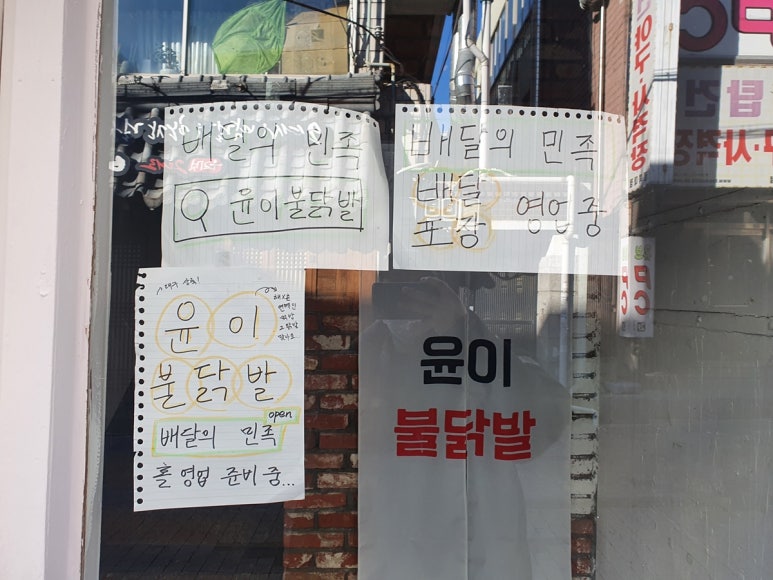 배달의 민족
윤이불닭발
배달의 민족
배달
포장
영업 중
윤이
불닭발
open
배달의 민족
홀 영업 준비 중...
윤이
불닭발
PC